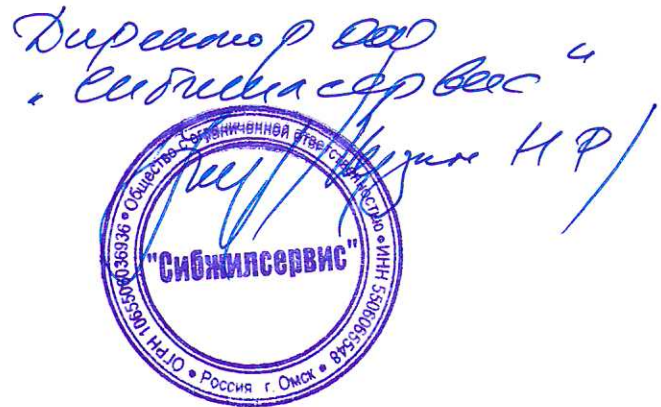 Директор ООО
"Сибжилсервис"
Н Ф/
Общество с ограниченной ответственностью • ИНН 5506065548
"Сибжилсервис"
ОГРН 1065506036936 •
• Россия г. Омск •